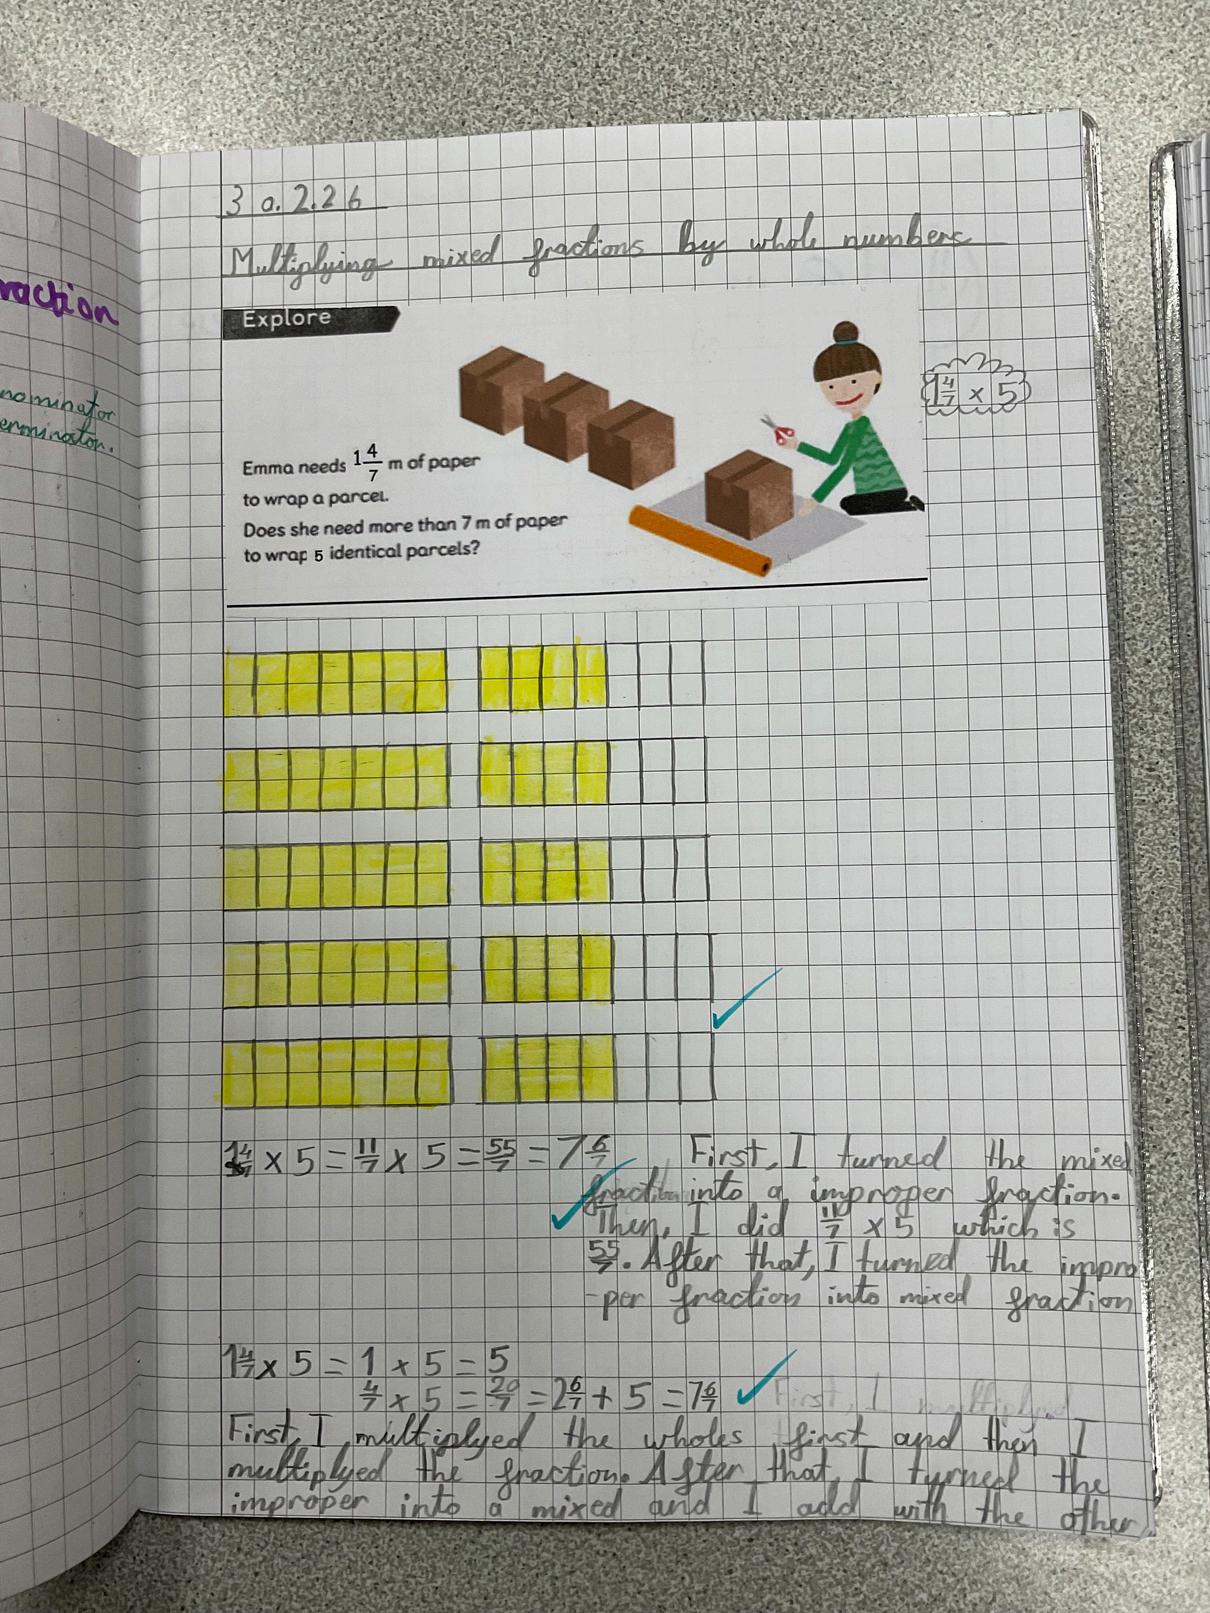 raction
nominator
erminator.
30.2.26
Multiplying mixed fractions by whole numbers
Explore
1 4/7 × 5
Emma needs 1 4/7 m of paper
to wrap a parcel.
Does she need more than 7 m of paper
to wrap 5 identical parcels?
1 4/7 × 5 = 11/7 × 5 = 55/7 = 7 6/7 First, I turned the mixed
fraction into a improper fraction.
Then, I did 11/7 × 5 which is
55/7. After that, I turned the impro
-per fraction into mixed fraction
1 4/7 × 5 = 1 × 5 = 5
4/7 × 5 = 20/7 = 2 6/7 + 5 = 7 6/7 First, I multiplyed
First, I multiplyed the wholes first and then I
multiplyed the fraction. After that, I turned the
improper into a mixed and I add with the other